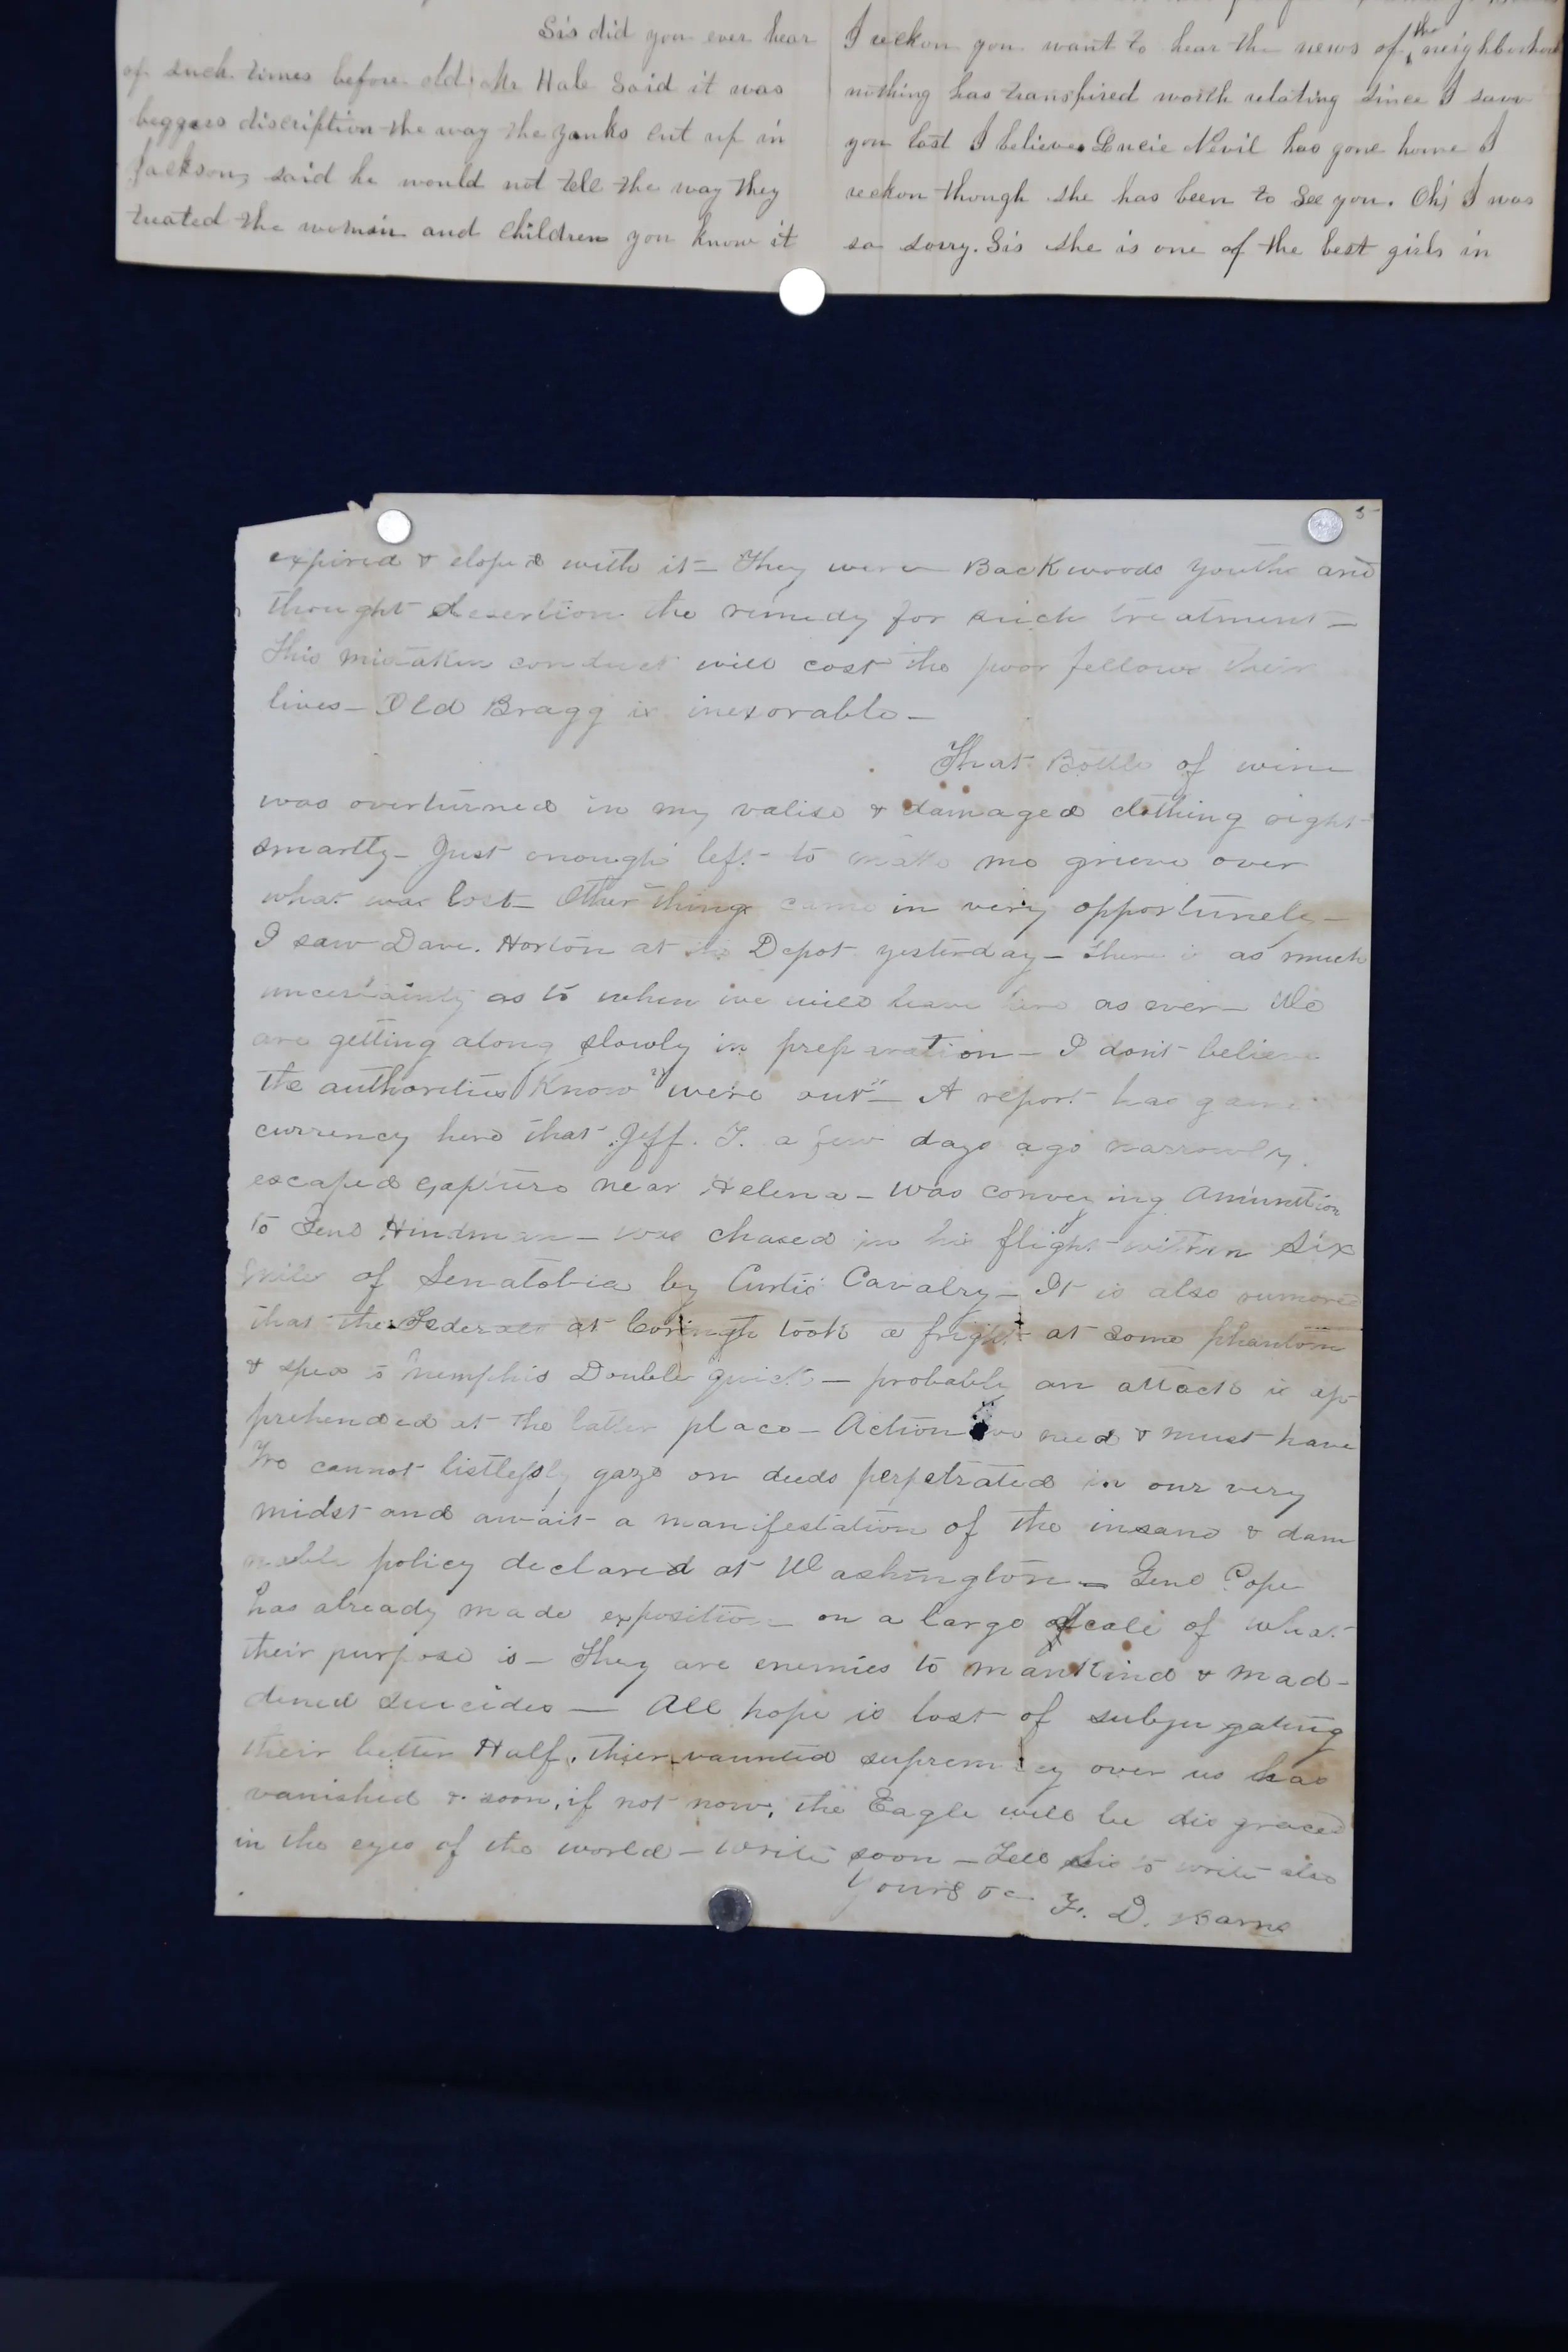 Sis did you ever hear
of such times before old Mr Hale Said it was
beggars discription the way the yanks cut up in
Jackson, said he would not tell the way they
treated the women and children you know it
I reckon you want to hear the news of the neighborhood
nothing has transpired worth relating since I saw
you last I believe. Lucie Nevil has gone home I
reckon though she has been to See you. Oh, I was
so sorry. Sis she is one of the best girls in
5
expired & eloped with it – They were Backwoods youths and
thought desertion the remedy for such treatment –
This mistaken conduct will cost the poor fellows their
lives – Old Bragg is inexorable –
That Bottle of wine
was overturned in my valise & damaged clothing right
smartly – Just enough left to make me grieve over
what was lost – Other things came in very opportunely –
I saw Dave. Horton at the Depot yesterday – there is as much
uncertainty as to when we will leave here as ever – We
are getting along slowly in preparation – I dont believe
the authorities Know "we're out" – A report has gain
currency here that Jeff. T. a few days ago narrowly
escaped capture near Helena – was conveying Amunition
to Genl Hindman – was chased in his flight within six
miles of Senatobia by Curtis' Cavalry – It is also rumored
that the Federals at Corinth took a fright at some phantom
& sped to Memphis Double quick – probable an attack is ap
prehended at the latter place – Action we need & must have
We cannot listlessly gaze on deeds perpetrated in our very
midst and await a manifestation of the insane & dam
nable policy declared at Washington – Genl Pope
has already made exposition on a large scale of what
their purpose is – They are enemies to mankind & mad-
dened suicides — All hope is lost of subjugating
their better Half, thier vaunted supremacy over us has
vanished & soon, if not now, the Eagle will be disgraced
in the eyes of the world – Write soon – Tell Sis to write also
Yours &c. F. D. Barne